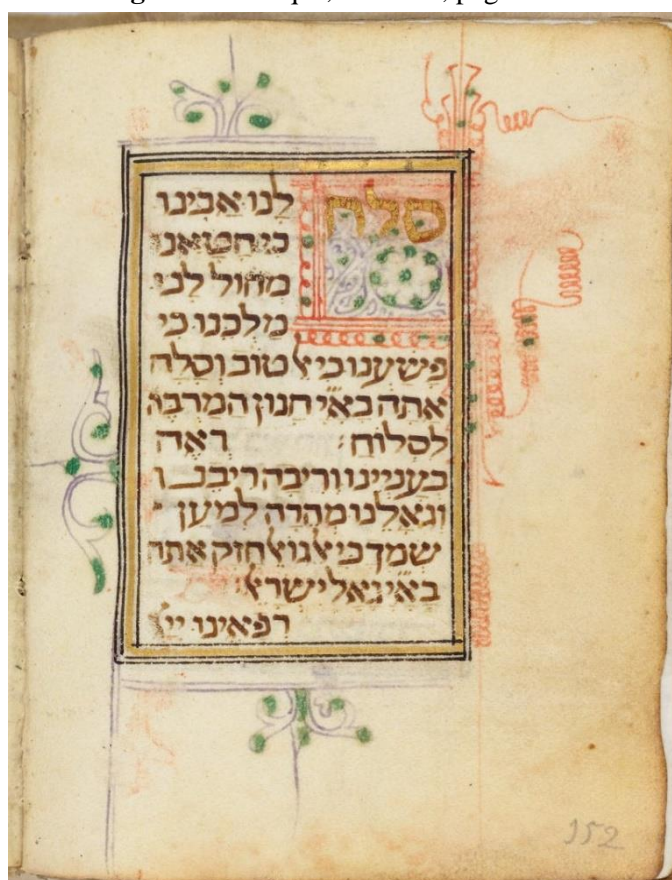 סלח לנו אבינו
כי חטאנו
מחול לנו
מלכנו כי
פשענו כי ﭏ טוב וסלח
אתה בא״י חנון המרבה
לסלוח: ראה
בעניינו וריבה ריבנו
וגאלנו מהרה למען
שמך כי ﭏ גוﭏ חזק אתה
בא״י גאל ישרﭏ:
רפאינו
152